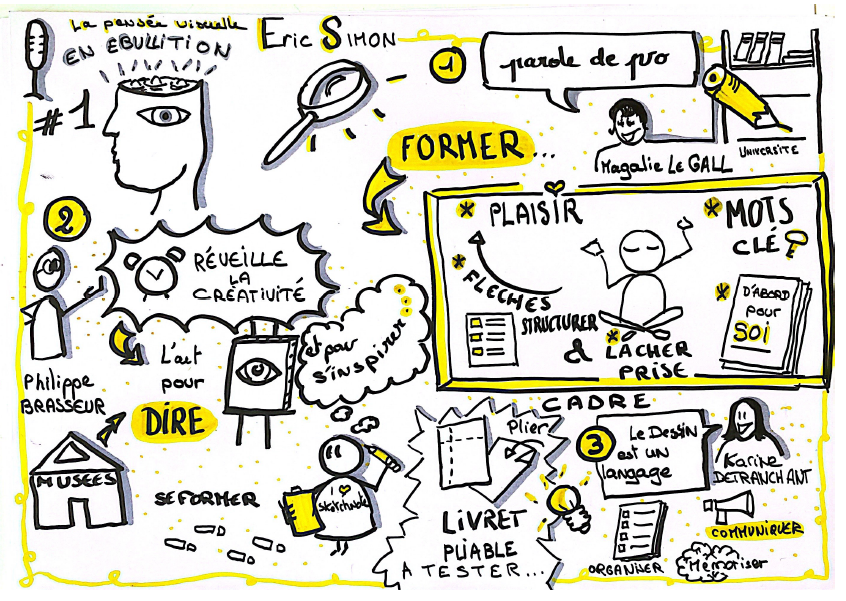 La pensée visuelle
EN EBULLITION
#1
Eric SIMON
1
parole de pro
Magalie Le GALL
UNIVERSITE
FORMER...
PLAISIR
FLECHES
STRUCTURER
&
LACHER
PRISE
MOTS
CLÉ
D'ABORD
pour
SOI
CADRE
2
RÉVEILLE
LA
CRÉATIVITÉ
Philippe
BRASSEUR
L'art
pour
DIRE
MUSÉES
et pour
s'inspirer
SE FORMER
I
sketchnote
Plier
LIVRET
PLIABLE
A TESTER...
3
Le DESSiN
est un
langage
Karine
DETRANCHANT
ORGANISER
COMMUNIQUER
Mémoriser